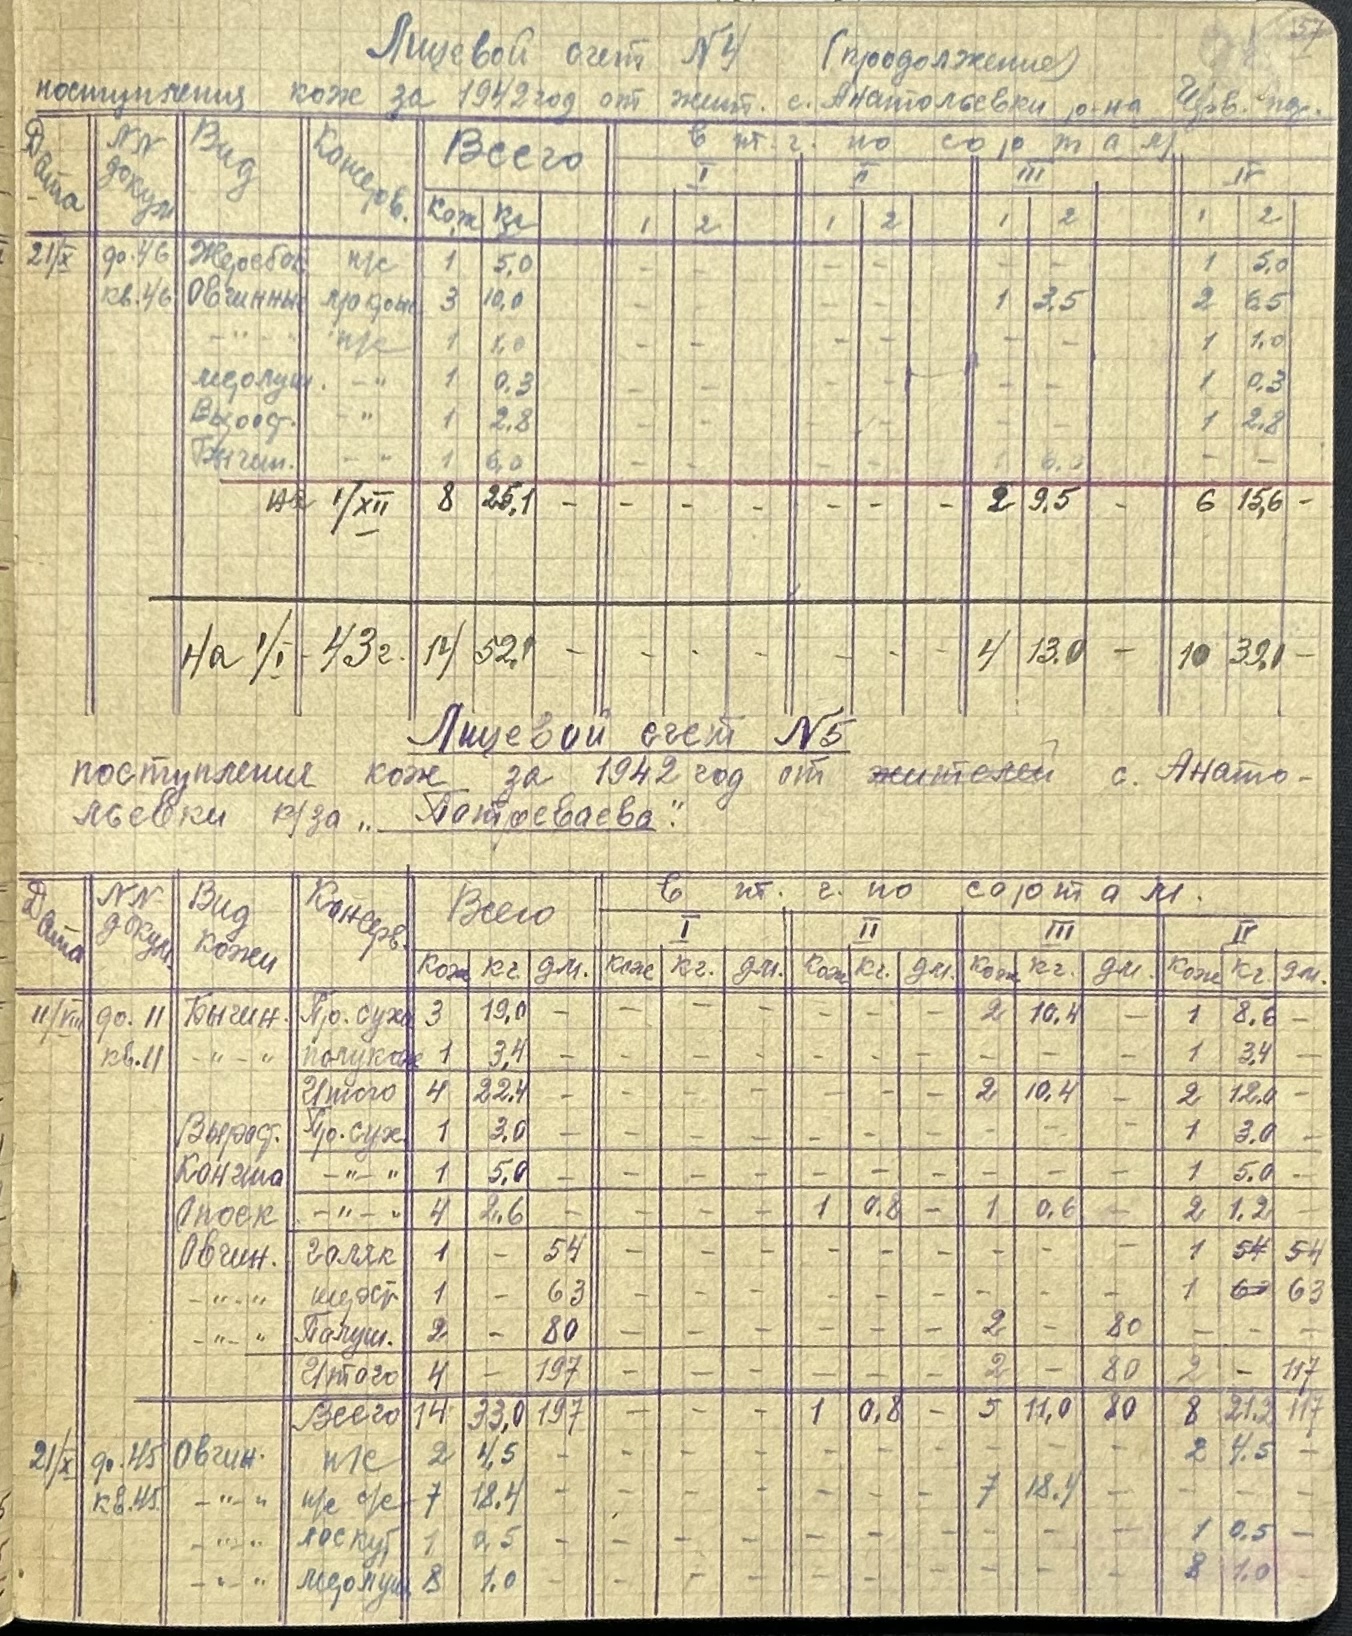 57
Лицевой счет N4 (продолжение)
поступления кож за 1942 год от жит. с. Анатольевки р-на
Дата NN докум Вид Консерв. Всего в т. ч. по сортам
I II III IV
кож кг 1 2 1 2 1 2 1 2
21/X до. 46 Жеребок п/с 1 5,0 - - - - - - 1 5,0
кв. 46 Овчинные 3 10,0 - - - - 1 3,5 2 6,5
-"- п/с 1 1,0 - - - - - - 1 1,0
-" 1 0,3 - - - - - - 1 0,3
Вырост. -" 1 2,8 - - - - - - 1 2,8
Бычин. -" 1 6,0 - - - - 1 6,0 - -
на 1/XII 8 25,1 - - - - - - - 2 9,5 - 6 15,6 -
На 1/I - 43 г. 14 52,1 - - - - - - - 4 13,0 - 10 39,1 -
Лицевой счет N5
поступления кож за 1942 год от жителей с. Анато-
льевки к/за „Патреваева"
Дата NN докум. Вид кожи Консерв. Всего в т. ч. по сортам.
I II III IV
кож кг. дм. кож кг. дм. кож кг. дм. кож кг. дм. кож кг. дм.
11/VIII до. 11 Бычин. Пр. сух 3 19,0 - - - - - - - 2 10,4 - 1 8,6 -
кв. 11 -"-" 1 3,4 - - - - - - - - - - 1 3,4 -
Итого 4 22,4 - - - - - - - 2 10,4 - 2 12,0 -
Вырост. Пр. сух. 1 3,0 - - - - - - - - - - 1 3,0 -
Конина -"-" 1 5,0 - - - - - - - - - - 1 5,0 -
Опоек -"-" 4 2,6 - - - - 1 0,8 - 1 0,6 - 2 1,2 -
Овчин. голяк 1 - 54 - - - - - - - - - 1 54 54
-"-" шерст 1 - 63 - - - - - - - - - 1 63 63
-"-" Полуш. 2 - 80 - - - - - - 2 - 80 - - -
Итого 4 - 197 - - - - - - 2 - 80 2 - 117
Всего 14 33,0 197 - - - 1 0,8 - 5 11,0 80 8 21,2 117
21/X до. 45 Овчин. п/с 2 4,5 - - - - - - - - - - 2 4,5 -
кв. 45 -"-" п/с 7 18,4 - - - - - - - 7 18,4 - - - -
-"-" лоскут 1 0,5 - - - - - - - - - - 1 0,5 -
-"-" 8 1,0 - - - - - - - - - - 8 1,0 -